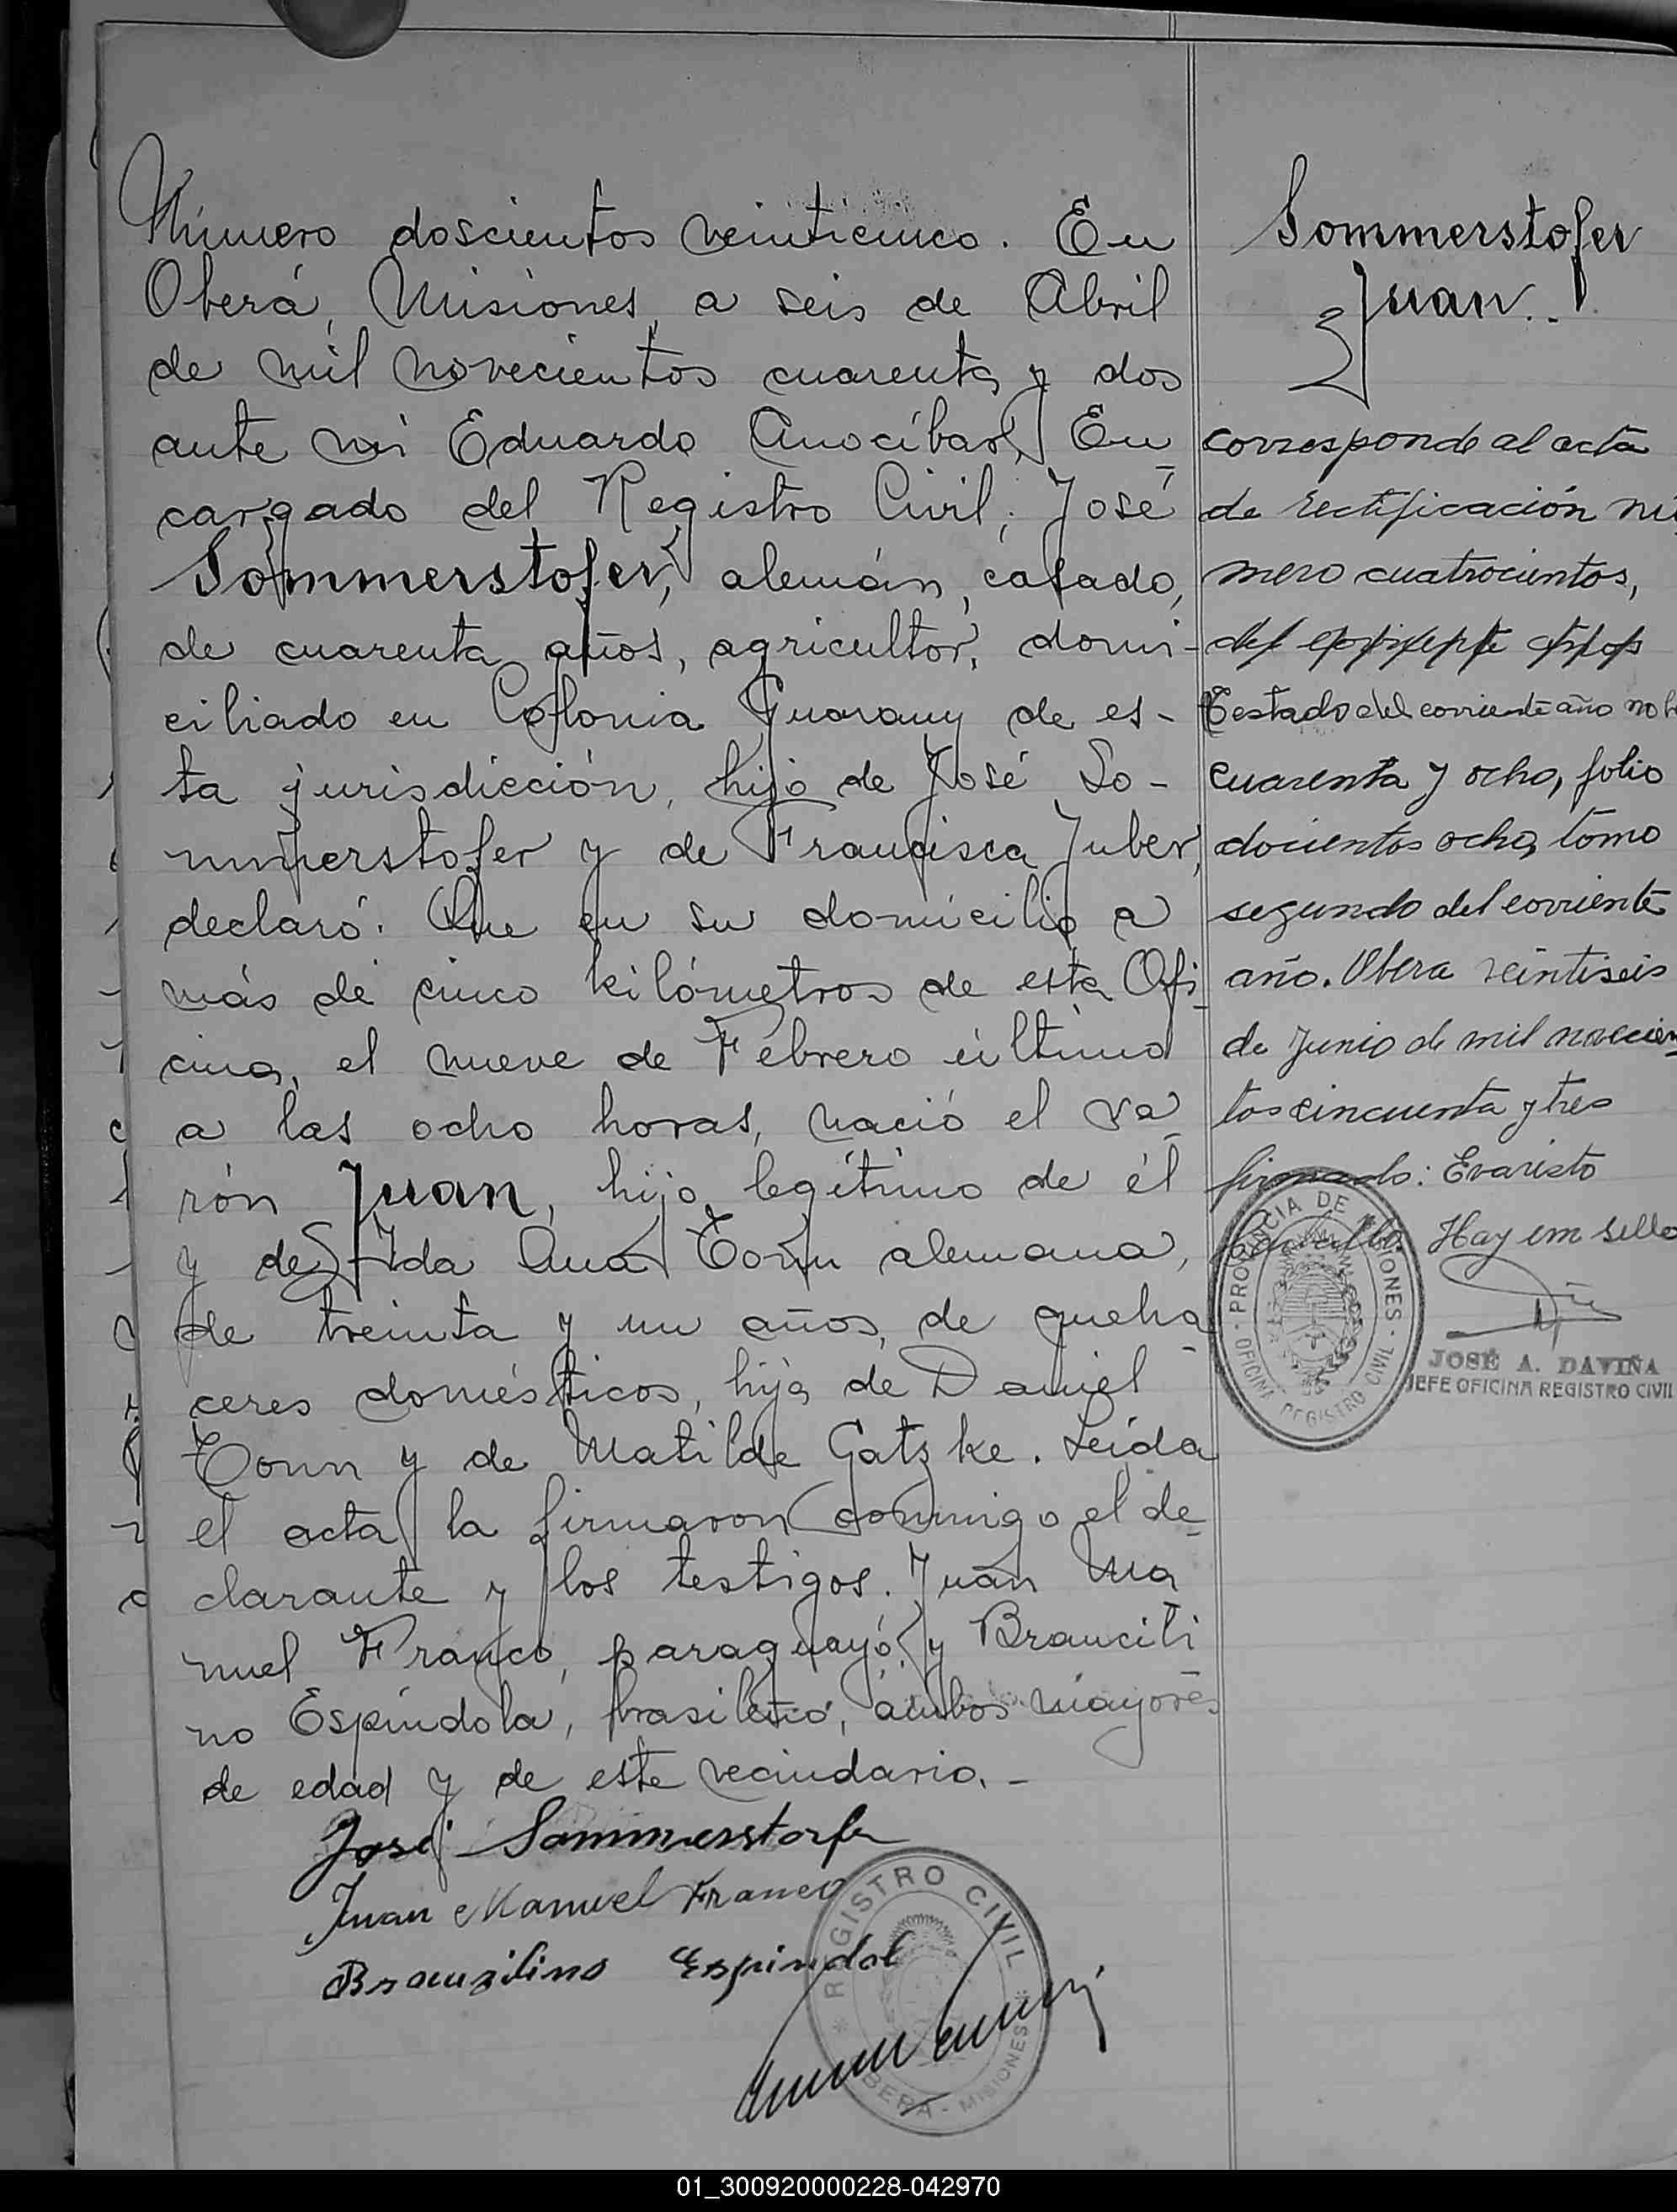 Número doscientos veinticinco. En
Oberá, Misiones, a seis de Abril
de mil novecientos cuarenta y dos
ante mí Eduardo Anocíbar, En
cargado del Registro Civil; José
Sommerstofer, alemán, casado,
de cuarenta años, agricultor, domi-
ciliado en Colonia Guarany de es-
ta jurisdicción, hijo de José So-
mmerstofer y de Francisca Juber,
declaró: Que en su domicilio a
más de cinco kilómetros de esta Ofi
cina, el nueve de Febrero último
a las ocho horas, nació el va
rón Juan, hijo legítimo de él
y de Ida Ana Tonn alemana,
de treinta y un años, de queha
ceres domésticos, hija de Daniel
Tonn y de Matilde Gatzke. Leída
el acta la firmaron conmigo el de
clarante y los testigos. Juan Ma
nuel Franco, paraguayo, y Braucili
no Espíndola, brasileño, ambos mayores
de edad y de este vecindario.-
José Sommerstorfer
Juan Manuel Franco
Brauzilino Espindol
REGISTRO CIVIL
OBERÁ - MISIONES
Sommerstofer
Juan..
corresponde al acta
de rectificación nú
mero cuatrocientos,
del
Testado del corriente año no
cuarenta y ocho, folio
docientos ocho, tomo
segundo del corriente
año. Obera veintiseis
de Junio de mil novecien
tos cincuenta y tres
firmado: Evaristo
Hay em sello
PROVINCIA DE MISIONES
OFICINA REGISTRO CIVIL
JOSÉ A. DAVIÑA
JEFE OFICINA REGISTRO CIVIL
01_300920000228-042970